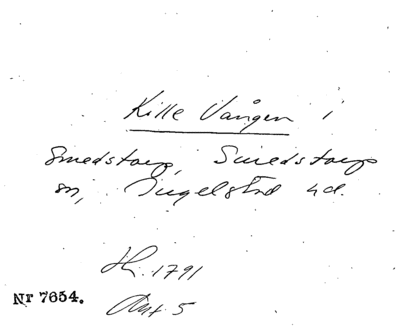 Kille Vången i
Smedstorp, Smedstorps
sn, Ingelstad hd.
H. 1791
Nr 7654.
Akt 5